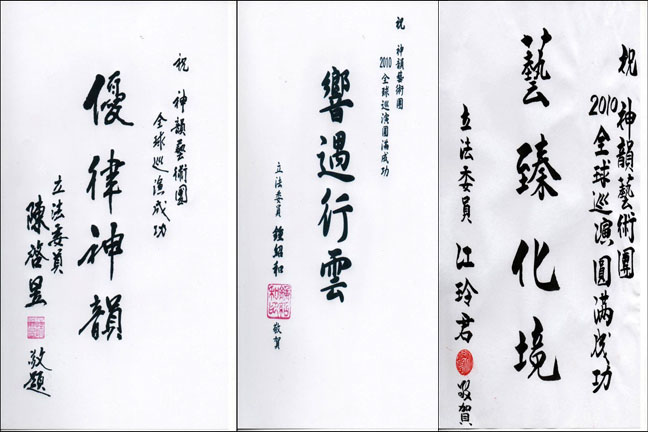 祝 神韻藝術團
全球巡演成功
優律神韻
立法委員
陳啓昱 敬題
祝 神韻藝術團
2010全球巡演圓滿成功
響遏行雲
立法委員 鍾紹和 敬賀
祝 神韻藝術團
2010全球巡演圓滿成功
藝臻化境
立法委員 江玲君 敬賀